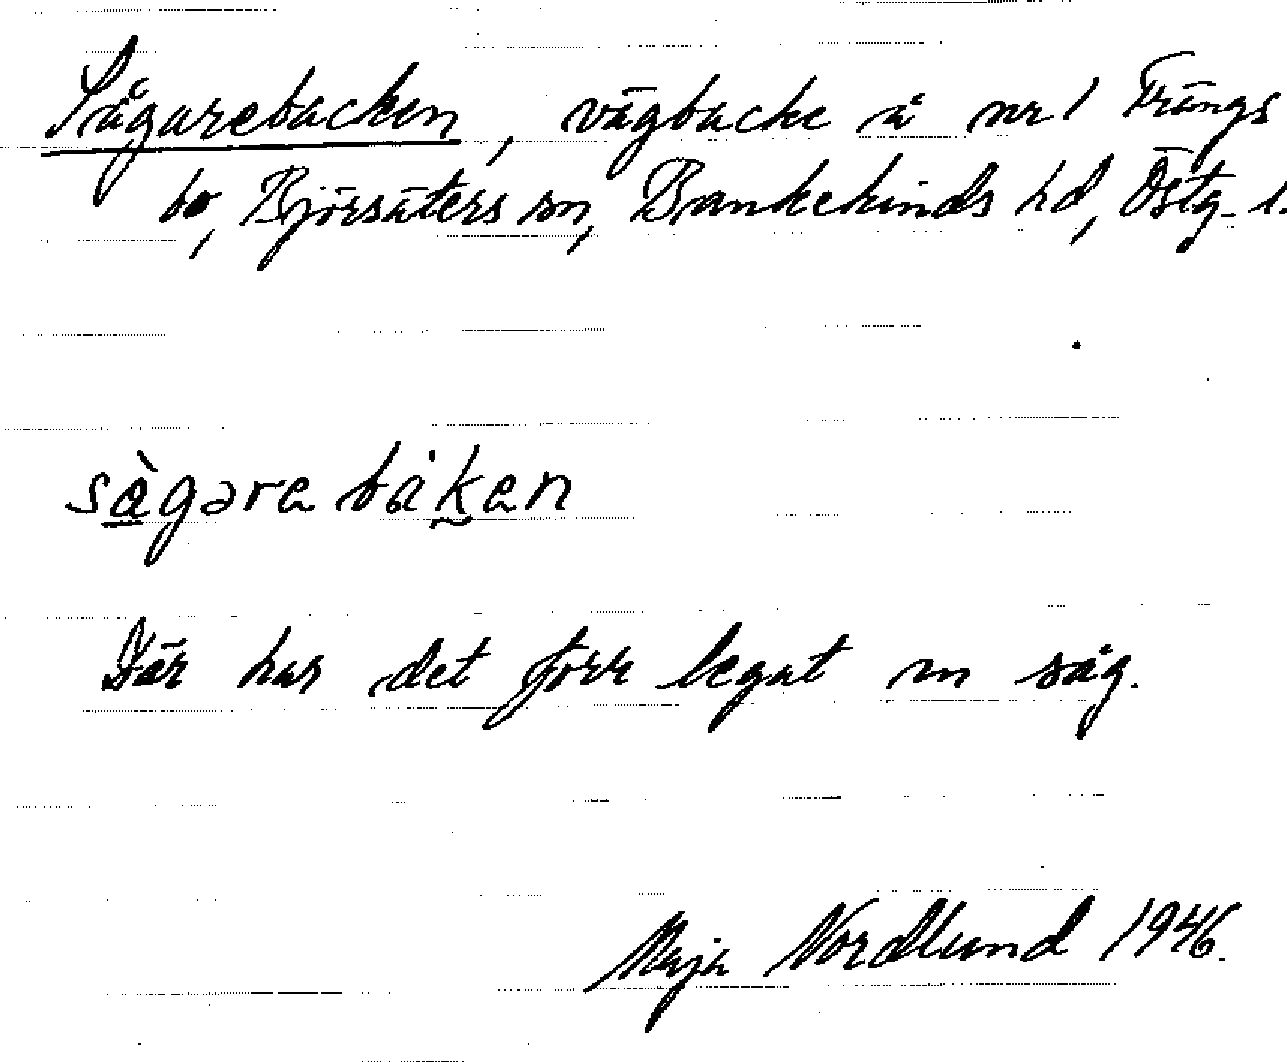 Sågarebacken, vägbacke å nr 1 Trängs
bo, Björsäters sn, Bankekinds hd, Östg. l.
sàgəra bákan
Där har det förr legat en såg.
Maja Nordlund 1946.